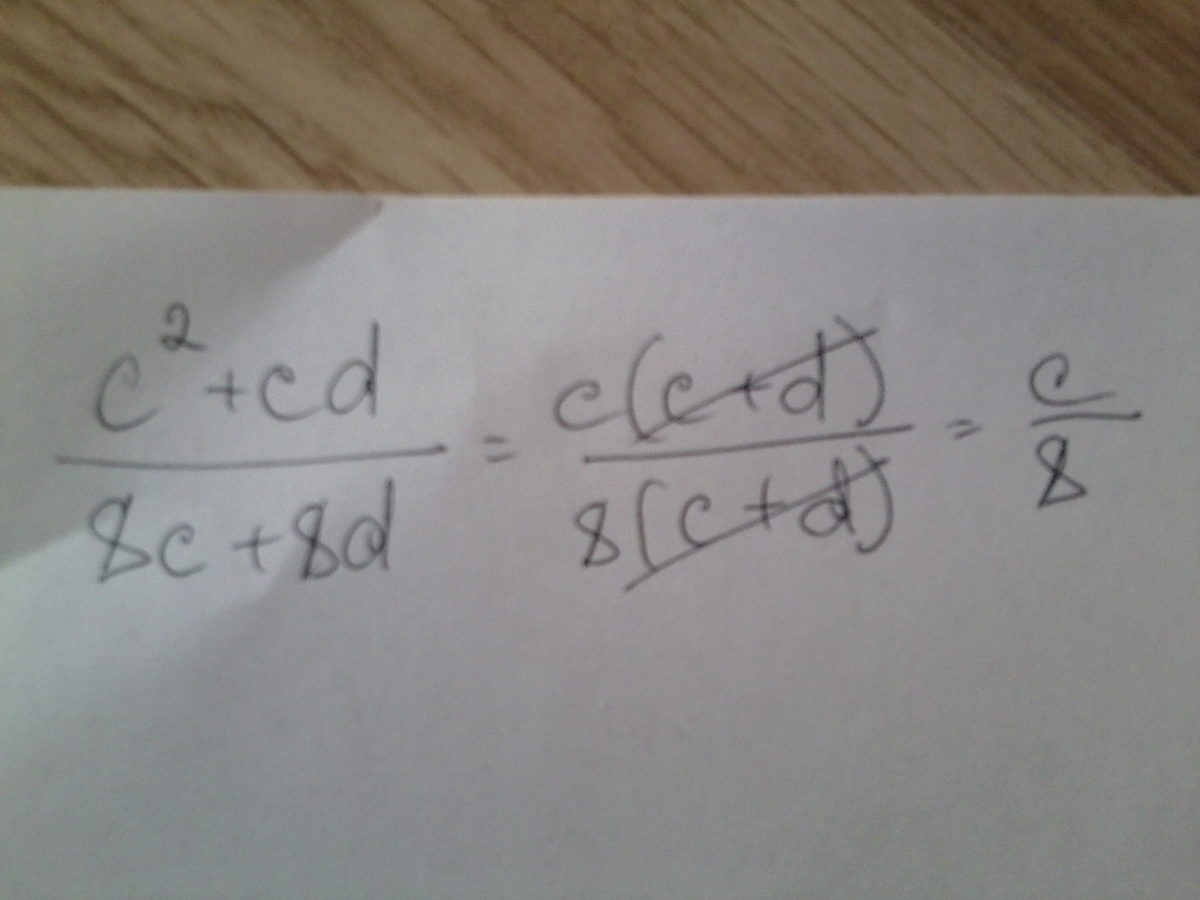 c²+cd / 8c+8d = c(c+d) / 8(c+d) = c / 8